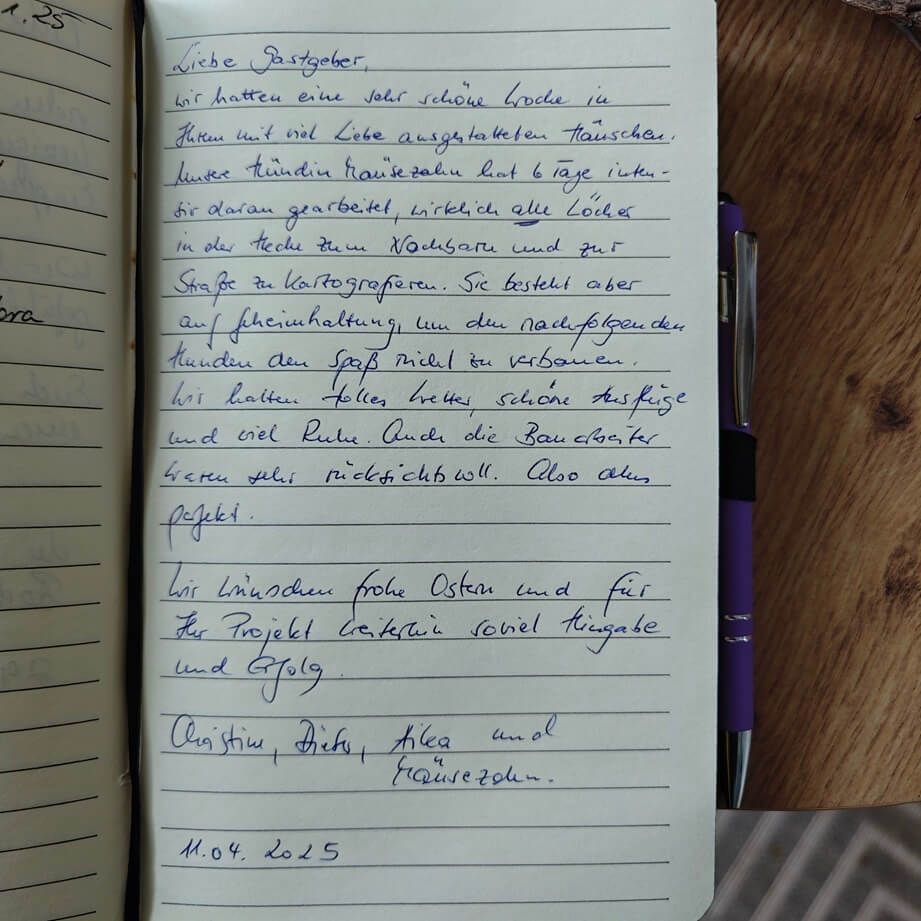 1.25
ora
Liebe Gastgeber,
wir hatten eine sehr schöne Woche in
Ihrem mit viel Liebe ausgestalteten Häuschen.
Unsere Hündin Mäusezahn hat 6 Tage inten-
siv daran gearbeitet, wirklich alle Löcher
in der Hecke zum Nachbarn und zur
Straße zu kartografieren. Sie besteht aber
auf Geheimhaltung, um den nachfolgenden
Hunden den Spaß nicht zu verbauen.
Wir hatten tolles Wetter, schöne Ausflüge
und viel Ruhe. Auch die Bauarbeiter
waren sehr rücksichtsvoll. Also alles
perfekt.
Wir wünschen frohe Ostern und für
Ihr Projekt weiterhin soviel Hingabe
und Erfolg.
Christine, Dieter, und
Mäusezahn.
11.04.2025